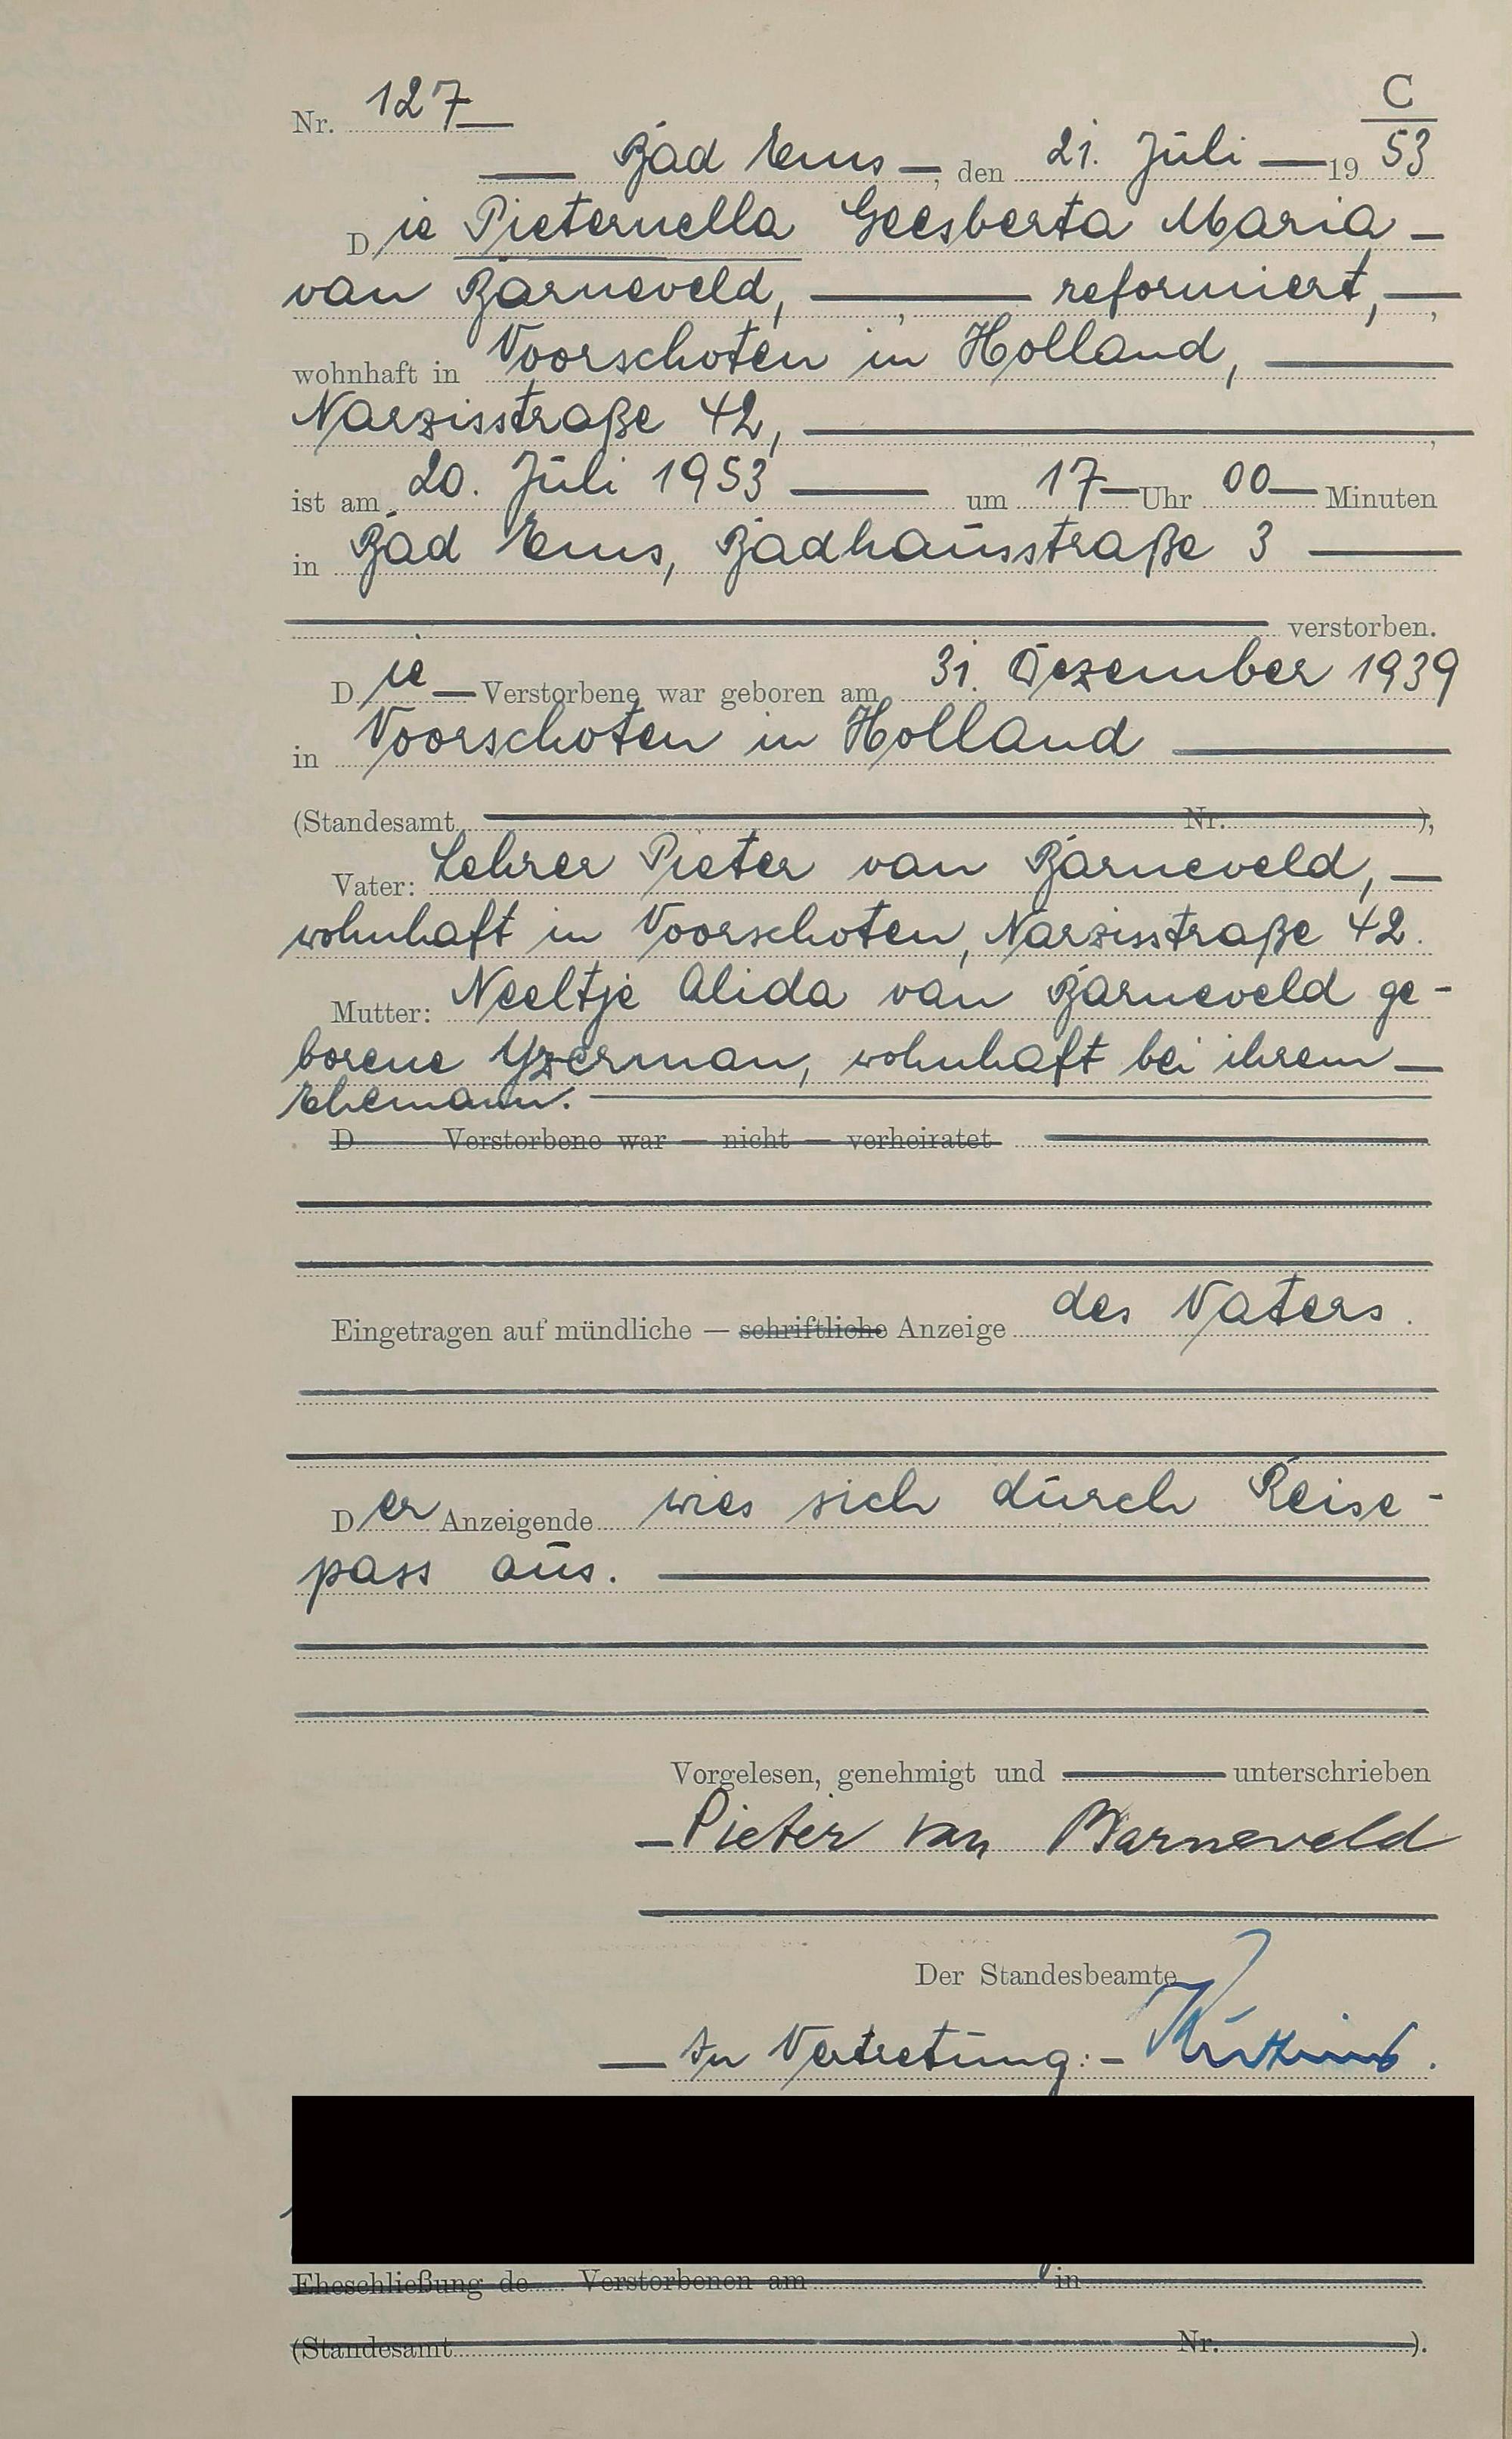 C
Nr. 127
Bad Ems, den 21. Juli 1953
Die Pieternella Geesberta Maria
van Barneveld, reformiert,
wohnhaft in Voorschoten in Holland,
Narzisstraße 42,
ist am 20. Juli 1953 um 17 Uhr 00 Minuten
in Bad Ems, Badhausstraße 3
verstorben.
Die Verstorbene war geboren am 31. Dezember 1939
in Voorschoten in Holland
(Standesamt Nr. ),
Vater: Lehrer Pieter van Barneveld,
wohnhaft in Voorschoten, Narzisstraße 42.
Mutter: Neeltje Alida van Barneveld ge-
borene Yzerman, wohnhaft bei ihrem
Ehemann.
D Verstorbene war — nicht — verheiratet
Eingetragen auf mündliche — schriftliche Anzeige des Vaters.
Der Anzeigende wies sich durch Reise-
pass aus.
Vorgelesen, genehmigt und unterschrieben
Pieter van Barneveld
Der Standesbeamte
In Vertretung:
Eheschließung de Verstorbenen am in
(Standesamt Nr. ).